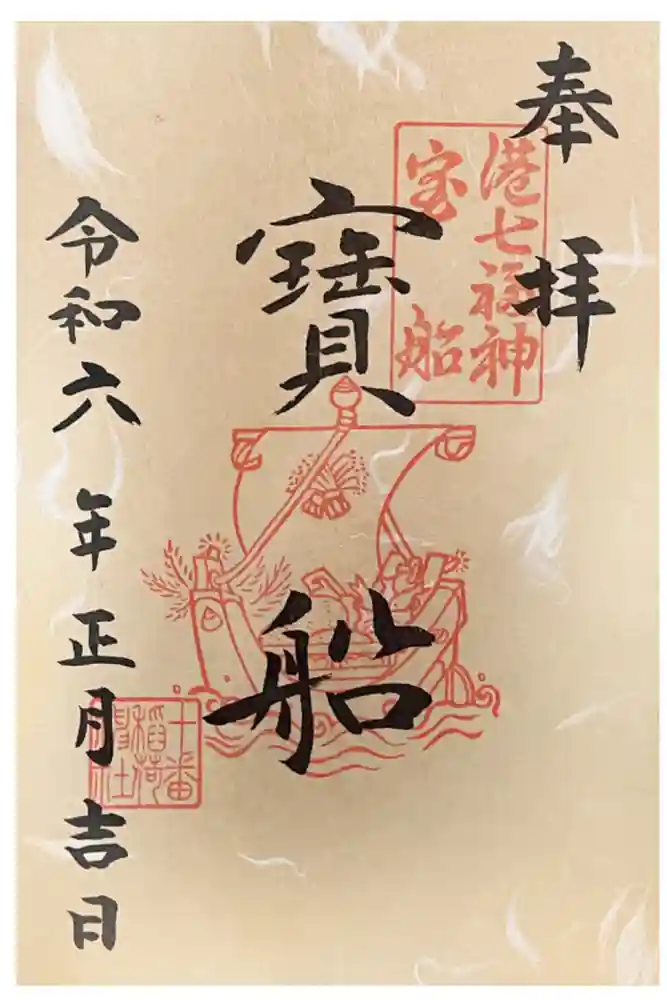 奉拝
港七福神
宝船
寶船
十番
稲荷
神社
令和六年正月吉日